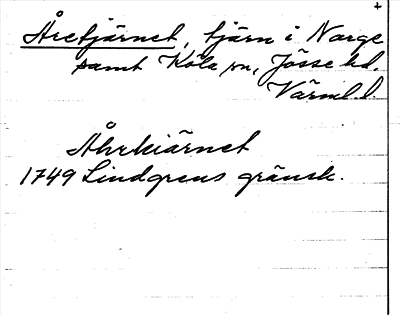 Åretjärnet, tjärn i Norge
samt Köla sn, Jösse hd.
Värml. l.
Åhrkiärnet
1749 Lindgrens gränsk.